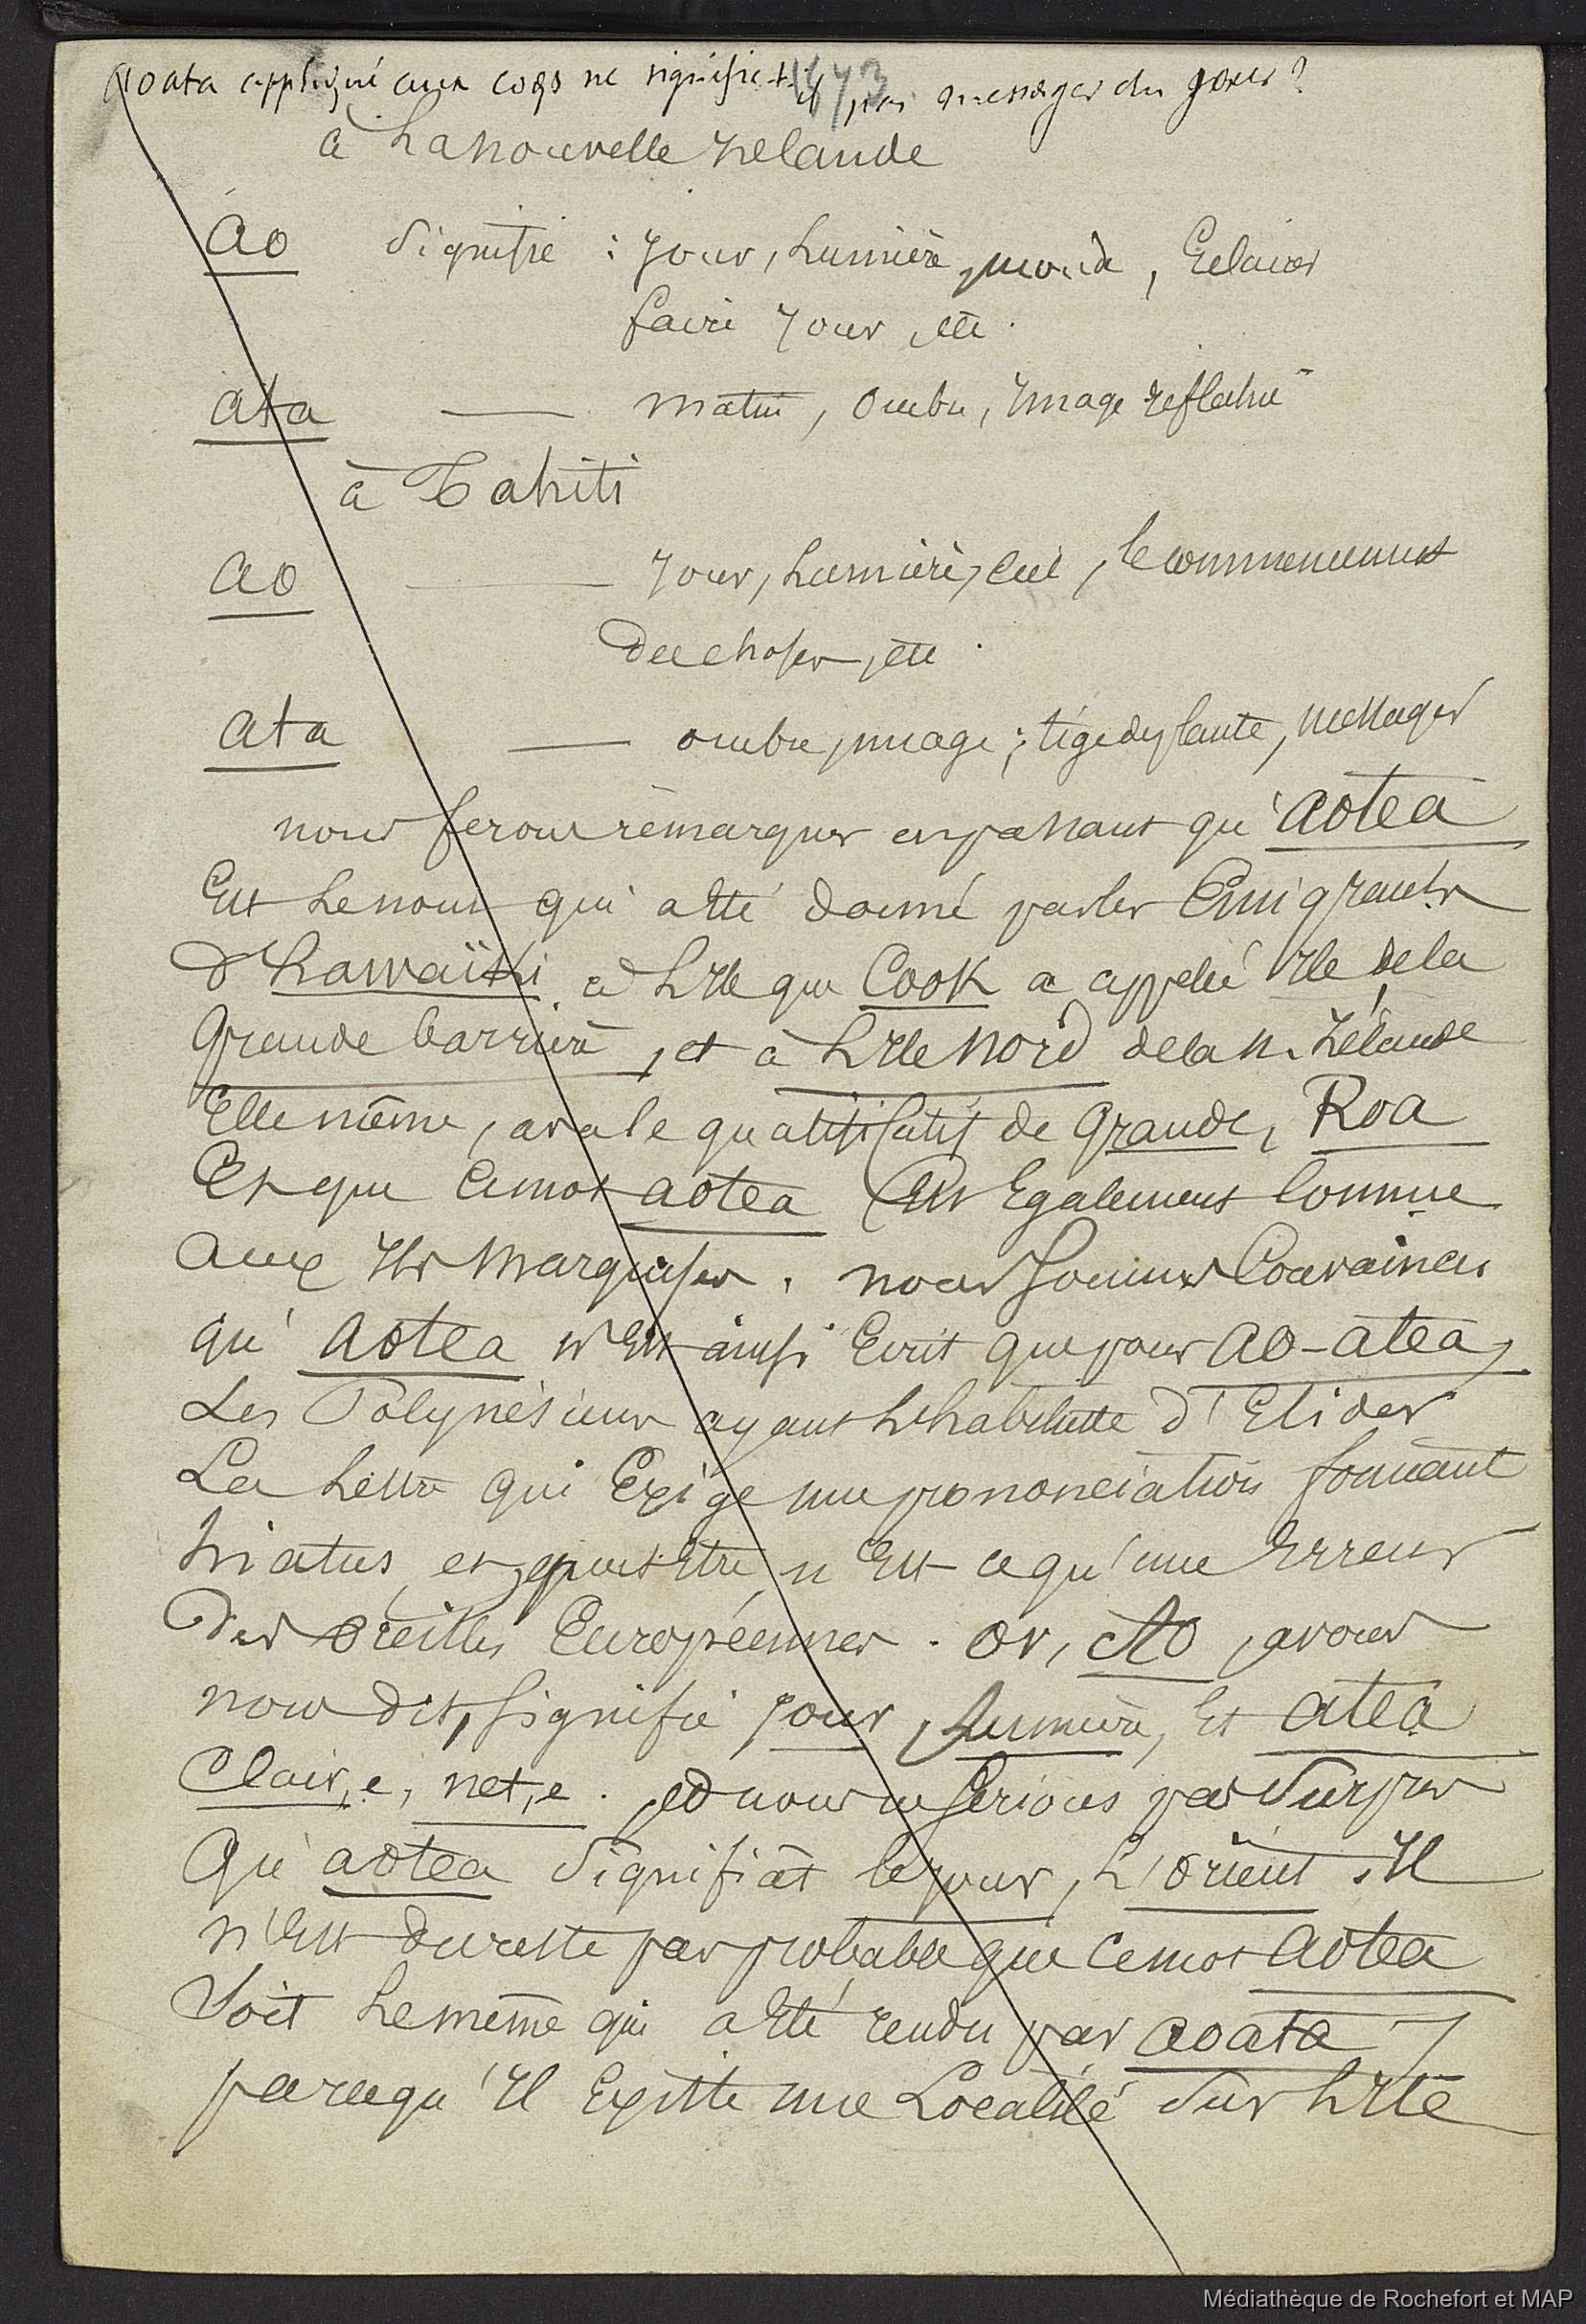 aoata appliqué aux coqs ne signifie t-il pas messager du jour ?
1473
à la nouvelle Zelande
ao signifie : Jour, Lumière, monde, Eclairer
faire Jour, etc.
ata — matin, ombre, Image réfléchie
à Tahiti
ao — Jour, Lumière, ciel, le commencement
des choses, etc.
ata — ombre, nuage ; tige de plante, messager
nous ferons remarquer en passant qu'aotea
Est le nom qui a Eté donné par les Emigrants
d'hawaïki à L'Ile que Cook a appelé Ile de la
Grande barrière, et à L'Ile nord de la n. Zélande
Elle même, avec le qualificatif de Grande, Roa
Et que ce mot aotea Est Egalement connu
aux Iles Marquises. nous sommes Convaincus
qu'aotea n'Est ainsi Ecrit que pour ao-atea,
Les Polynésiens ayant L'habitude d'Elider
La Lettre qui Exige une prononciation formant
hiatus, et peut-être n'Est ce qu'une Erreur
des oreilles Européennes. or, Ao, avons
nous dit, signifie jour, Lumière, Et atea
Clair,e, net,e. Et nous ne serions pas surpris
qu'aotea signifiât le jour, L'orient. Il
n'Est du reste pas probable que ce mot aotea
soit Le même qui a Eté rendu par aoata,
parcequ'Il Existe une Localité sur L'Ile
Médiathèque de Rochefort et MAP